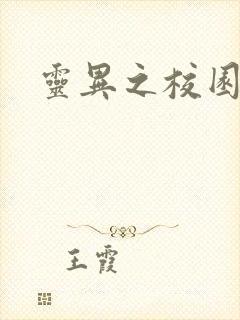 靈異之校園
王霞